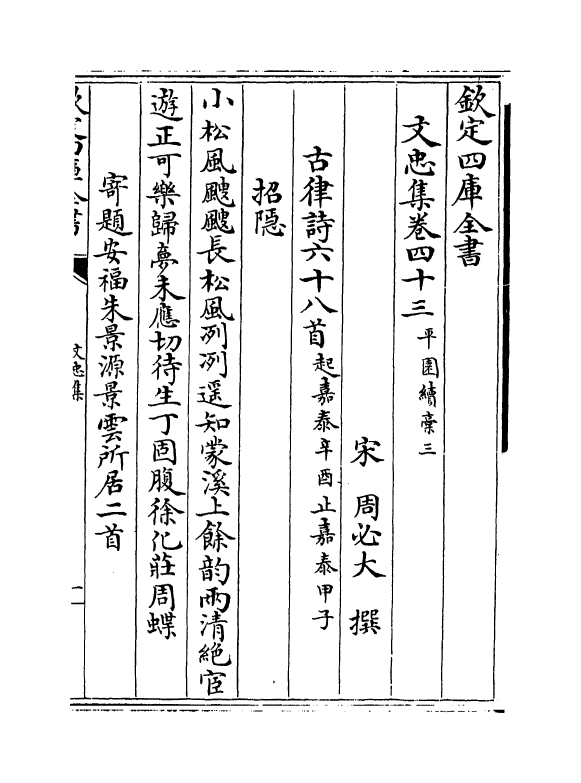 欽定四庫全書
文忠集卷四十三 平園續稾三
宋 周必大 撰
古律詩六十八首 起嘉泰辛酉止嘉泰甲子
招隠
小松風颼颼長松風冽冽遥知蒙溪上餘韵兩清絶宦
遊正可樂歸夢未應切待生丁固腹徐化莊周蝶
寄題安福朱景源景雲所居二首
文忠集
一